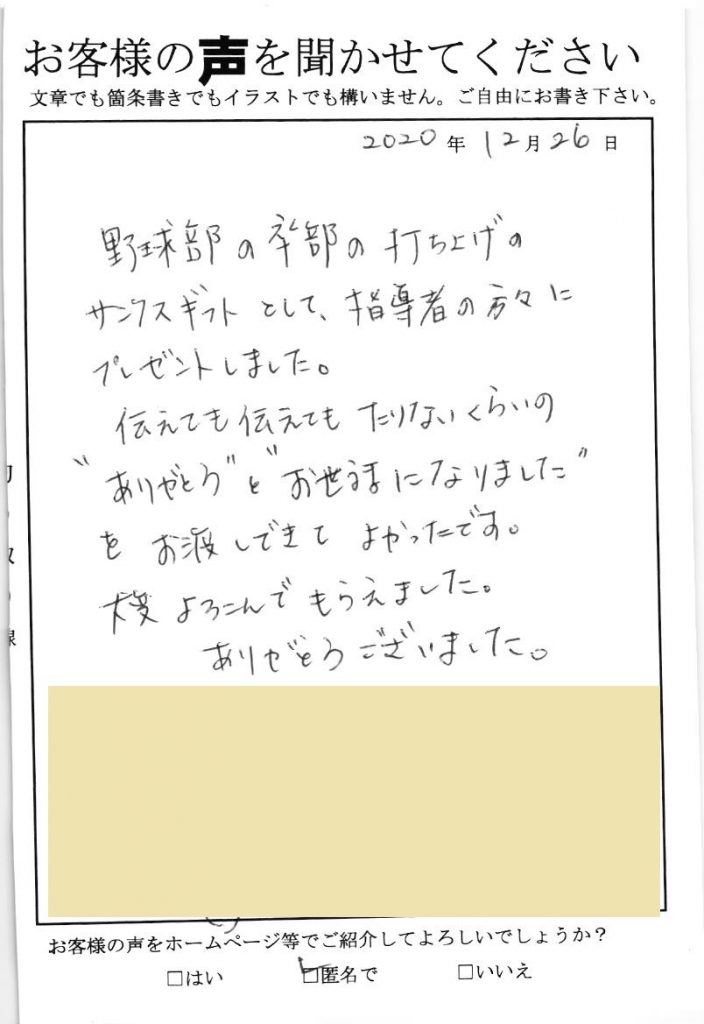 お客様の声を聞かせてください
文章でも箇条書きでもイラストでも構いません。ご自由にお書き下さい。
2020年12月26日
野球部の卒部の打ち上げの
サンクスギフトとして、指導者の方々に
プレゼントしました。
伝えても伝えてもたりないくらいの
"ありがとう"と"お世話になりました"
をお渡しできてよかったです。
大変よろこんでもらえました。
ありがとうございました。
お客様の声をホームページ等でご紹介してよろしいでしょうか？
□はい □匿名で □いいえ